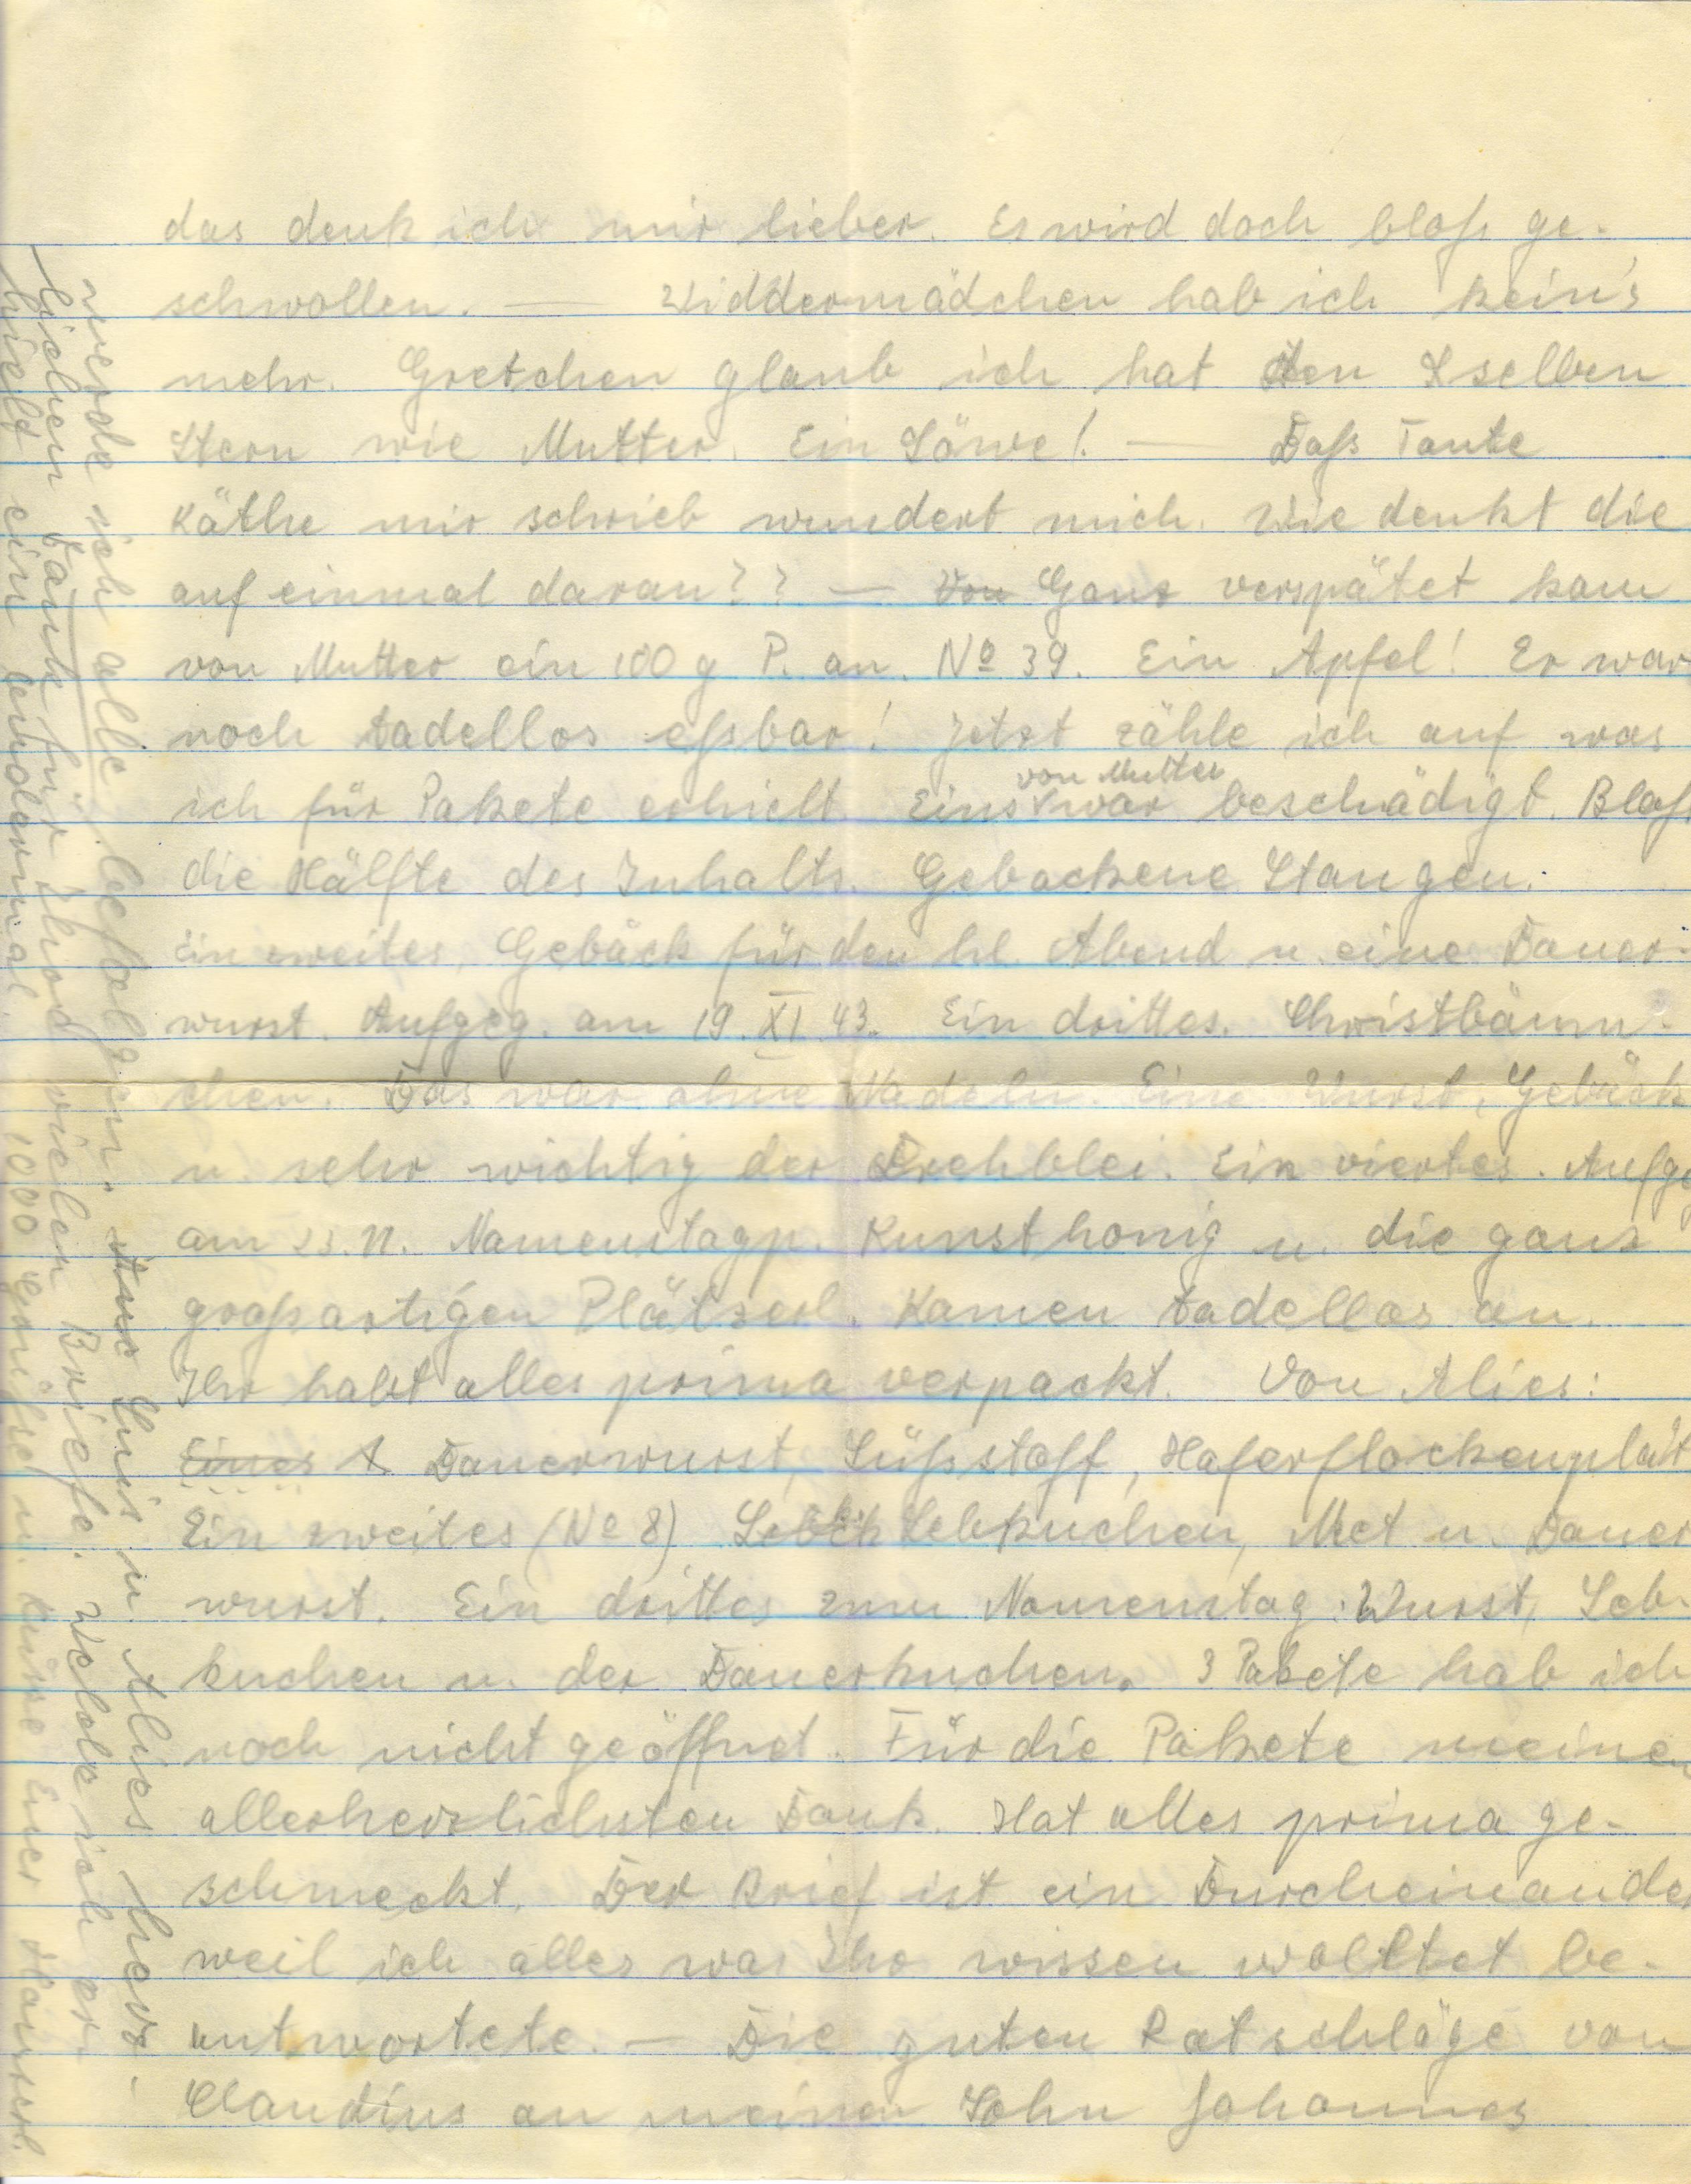 das denk ich mir lieber. Es wird doch bloß ge-
schwollen. — Widdermädchen hab ich kein's
mehr. Gretchen glaub ich hat den selben
Stern wie Mutter. Ein Löwe! — Daß Tante
Käthe mir schrieb wundert mich. Wie denkt die
auf einmal daran?? — Von Ganz verspätet kam
von Mutter ein 100 g P. an. No 39. Ein Apfel! Er war
noch tadellos eßbar! Jetzt zähle ich auf was
ich für Pakete erhielt. Eins von Mutter war beschädigt. Bloß
die Hälfte des Inhalts. Gebackene Stangen.
Ein zweites, Gebäck für den hl. Abend u. eine Dauer-
wurst. Aufgeg. am 19. XI. 43. Ein drittes. Christbäum-
chen. Das war ohne Nadeln. Eine Wurst, Gebäck
u. sehr wichtig der Drehblei. Ein viertes. Aufgeg
am 23. 11. Namenstagp. Kunsthonig u. die ganz
großartigen Plätzerl. Kamen tadellos an.
Ihr habt alles prima verpackt. Von Alies:
Eines Dauerwurst, Süßstoff, Haferflockenplät
Ein zweites (No 8) Lebkuchen, Met u. Dauer
wurst. Ein drittes zum Namenstag: Wurst, Leb-
kuchen u. der Dauerkuchen. 3 Pakete hab ich
noch nicht geöffnet. Für die Pakete meinen
allerherzlichsten Dank. Hat alles prima ge-
schmeckt. Der Brief ist ein Durcheinander
weil ich alles was Ihr wissen wolltet be-
antwortete. — Die guten Ratschläge von
Claudius an meinen Sohn Johannes
werde ich alle befolgen. Luis u. Alies herz-
lichen Dank für Ihre vielen Briefe. Welche ich er-
hielt ein andermal. 1000 Grüße u. Küsse Euer Hanserl.